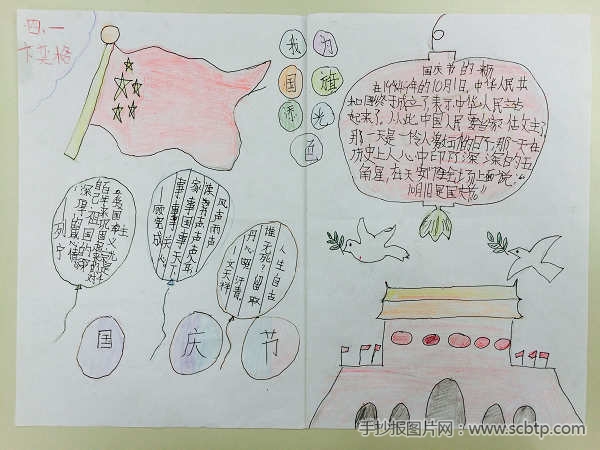 四、一
卞奕格
我为
国旗
添光
色
国庆节的
在1949年的10月1日,中华人民共
和国终于成立了,表示:中华人民站
起来了,从此中国人民要当家作主了!
那一天是一个令人激动的日子,那一天在
历史上人心中印了深深的五
角星,在天安门广场上面说:“
10月1日是国庆节”。
爱国主
自己祖国的
深厚的感情
—列宁
风声雨声
读书声声声入耳
家事国事天下
事事事关心
—顾宪成
人生自古
谁无死?留取
丹心照汗青。
—文天祥
国 庆 节
手抄报图片网:www.scbtp.com